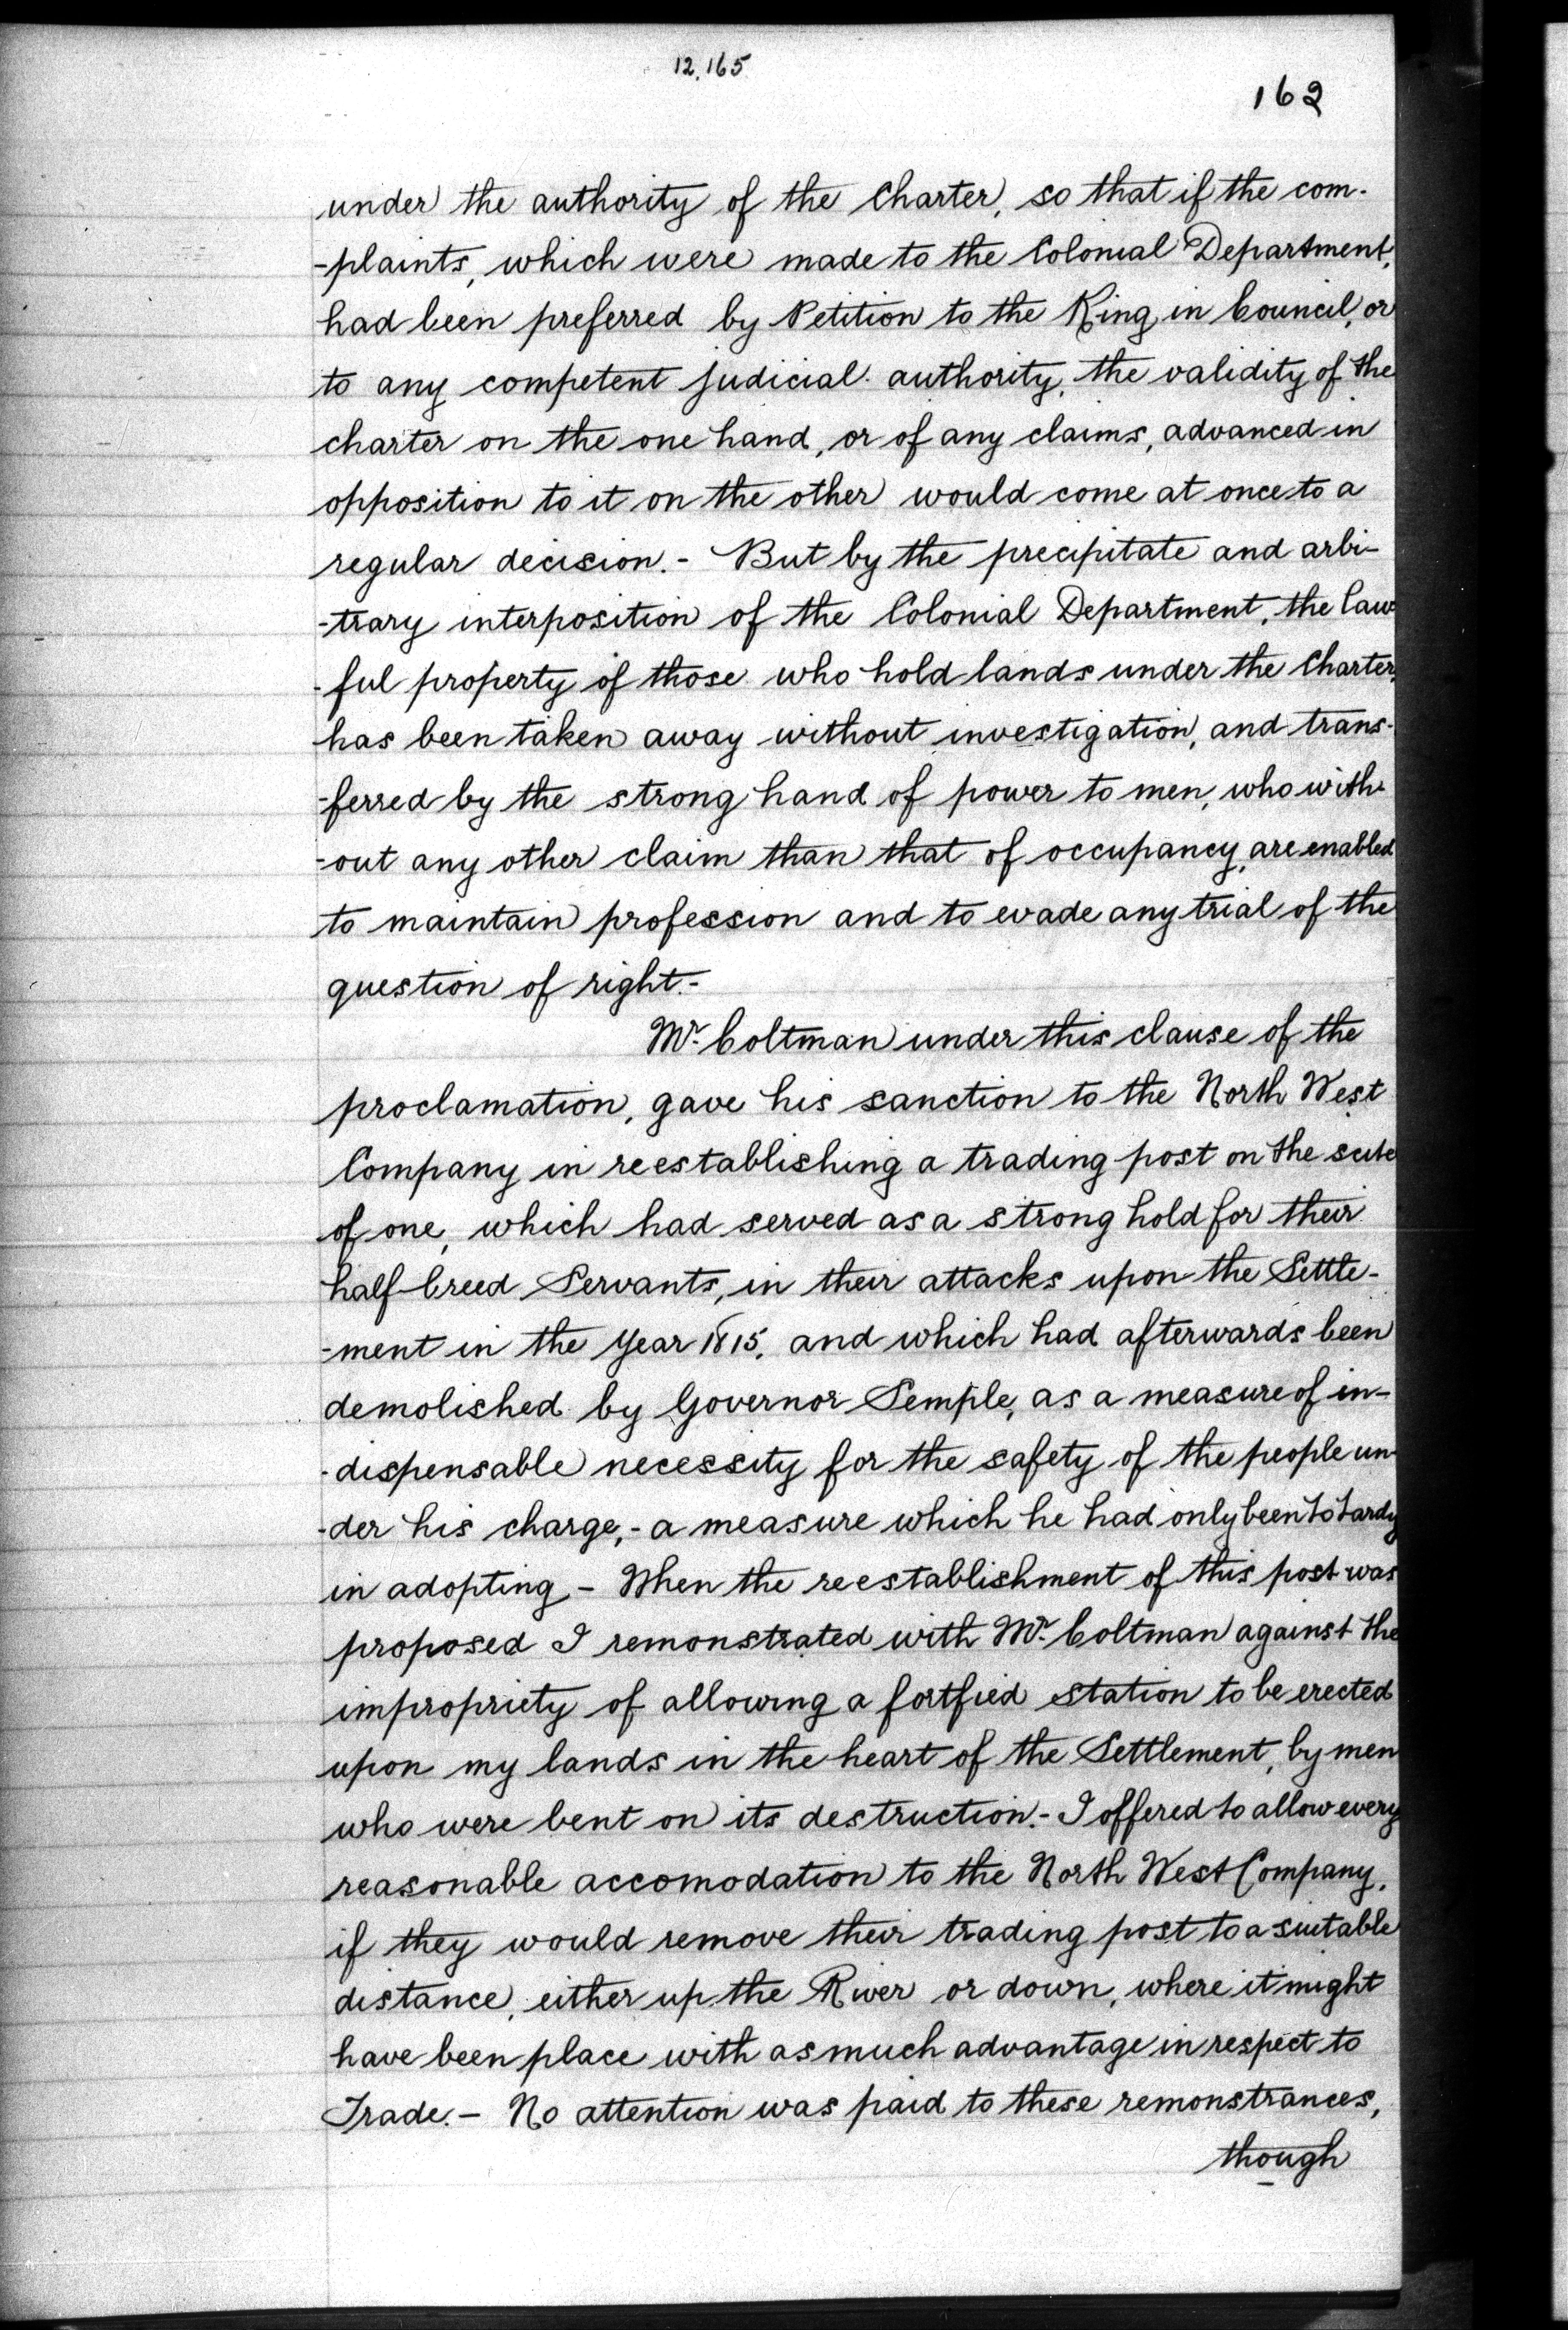 12,165
162
under the authority of the Charter, so that if the com-
-plaints, which were made to the Colonial Department,
had been preferred by Petition to the King in Council, or
to any competent judicial authority, the validity of the
charter on the one hand, or of any claims, advanced in
opposition to it on the other would come at once to a
regular decision.- But by the precipitate and arbi-
-trary interposition of the Colonial Department, the law-
-ful property of those who hold lands under the Charter,
has been taken away without investigation, and trans-
-ferred by the strong hand of power to men, who with-
-out any other claim than that of occupancy, are enabled
to maintain profession and to evade any trial of the
question of right.-
Mr. Coltman under this clause of the
proclamation, gave his sanction to the North West
Company in reestablishing a trading post on the scite
of one, which had served as a strong hold for their
half-breed Servants, in their attacks upon the Settle-
-ment in the Year 1815, and which had afterwards been
demolished by Governor Semple, as a measure of in-
-dispensable necessity for the safety of the people un-
-der his charge,- a measure which he had only been to tardy
in adopting - When the reestablishment of this post was
proposed I remonstrated with Mr. Coltman against the
impropriety of allowing a fortfied station to be erected
upon my lands in the heart of the Settlement, by men
who were bent on its destruction.- I offered to allow every
reasonable accomodation to the North West Company,
if they would remove their trading post to a suitable
distance, either up the River or down, where it might
have been place with as much advantage in respect to
Trade.- No attention was paid to these remonstrances,
though